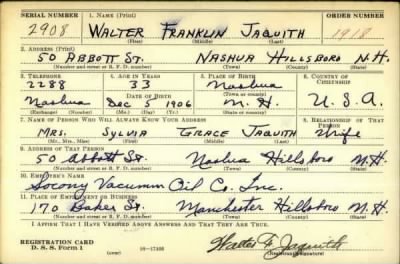 SERIAL NUMBER 1. NAME (Print) ORDER NUMBER
2908 WALTER FRANKLIN JAQUITH 1918
(First) (Middle) (Last)
2. ADDRESS (Print)
50 ABBOTT ST. NASHUA HILLSBORO N.H.
(Number and street or R. F. D. number) (Town) (County) (State)
3. TELEPHONE 4. AGE IN YEARS 5. PLACE OF BIRTH 6. COUNTRY OF CITIZENSHIP
2288 33 Nashua
DATE OF BIRTH (Town or county)
Nashua Dec 5 1906 N. H. U.S.A.
(Exchange) (Number) (Mo.) (Day) (Yr.) (State or country)
7. NAME OF PERSON WHO WILL ALWAYS KNOW YOUR ADDRESS 8. RELATIONSHIP OF THAT PERSON
MRS. SYLVIA GRACE JAQUITH Wife
(Mr., Mrs., Miss) (First) (Middle) (Last)
9. ADDRESS OF THAT PERSON
50 Abbott St. Nashua Hillsboro N.H.
(Number and street or R. F. D. number) (Town) (County) (State)
10. EMPLOYER'S NAME
Socony Vacumm Oil Co. Inc.
11. PLACE OF EMPLOYMENT OR BUSINESS
170 Baker St. Manchester Hillsboro N.H.
(Number and street or R. F. D. number) (Town) (County) (State)
I AFFIRM THAT I HAVE VERIFIED ABOVE ANSWERS AND THAT THEY ARE TRUE.
REGISTRATION CARD
D. S. S. Form 1 (over) 16—17105 Walter F. Jaquith
(Registrant's signature)